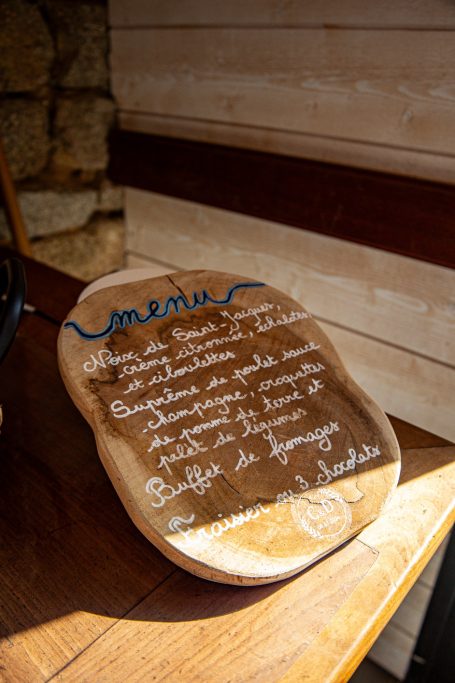 menu
Noix de Saint-Jacques,
crème citronnée, échalotes
et ciboulettes
Suprême de poulet sauce
champagne, croquettes
de pomme de terre et
palet de légumes
Buffet de fromages
Fraisier ou 3 chocolats
C & D